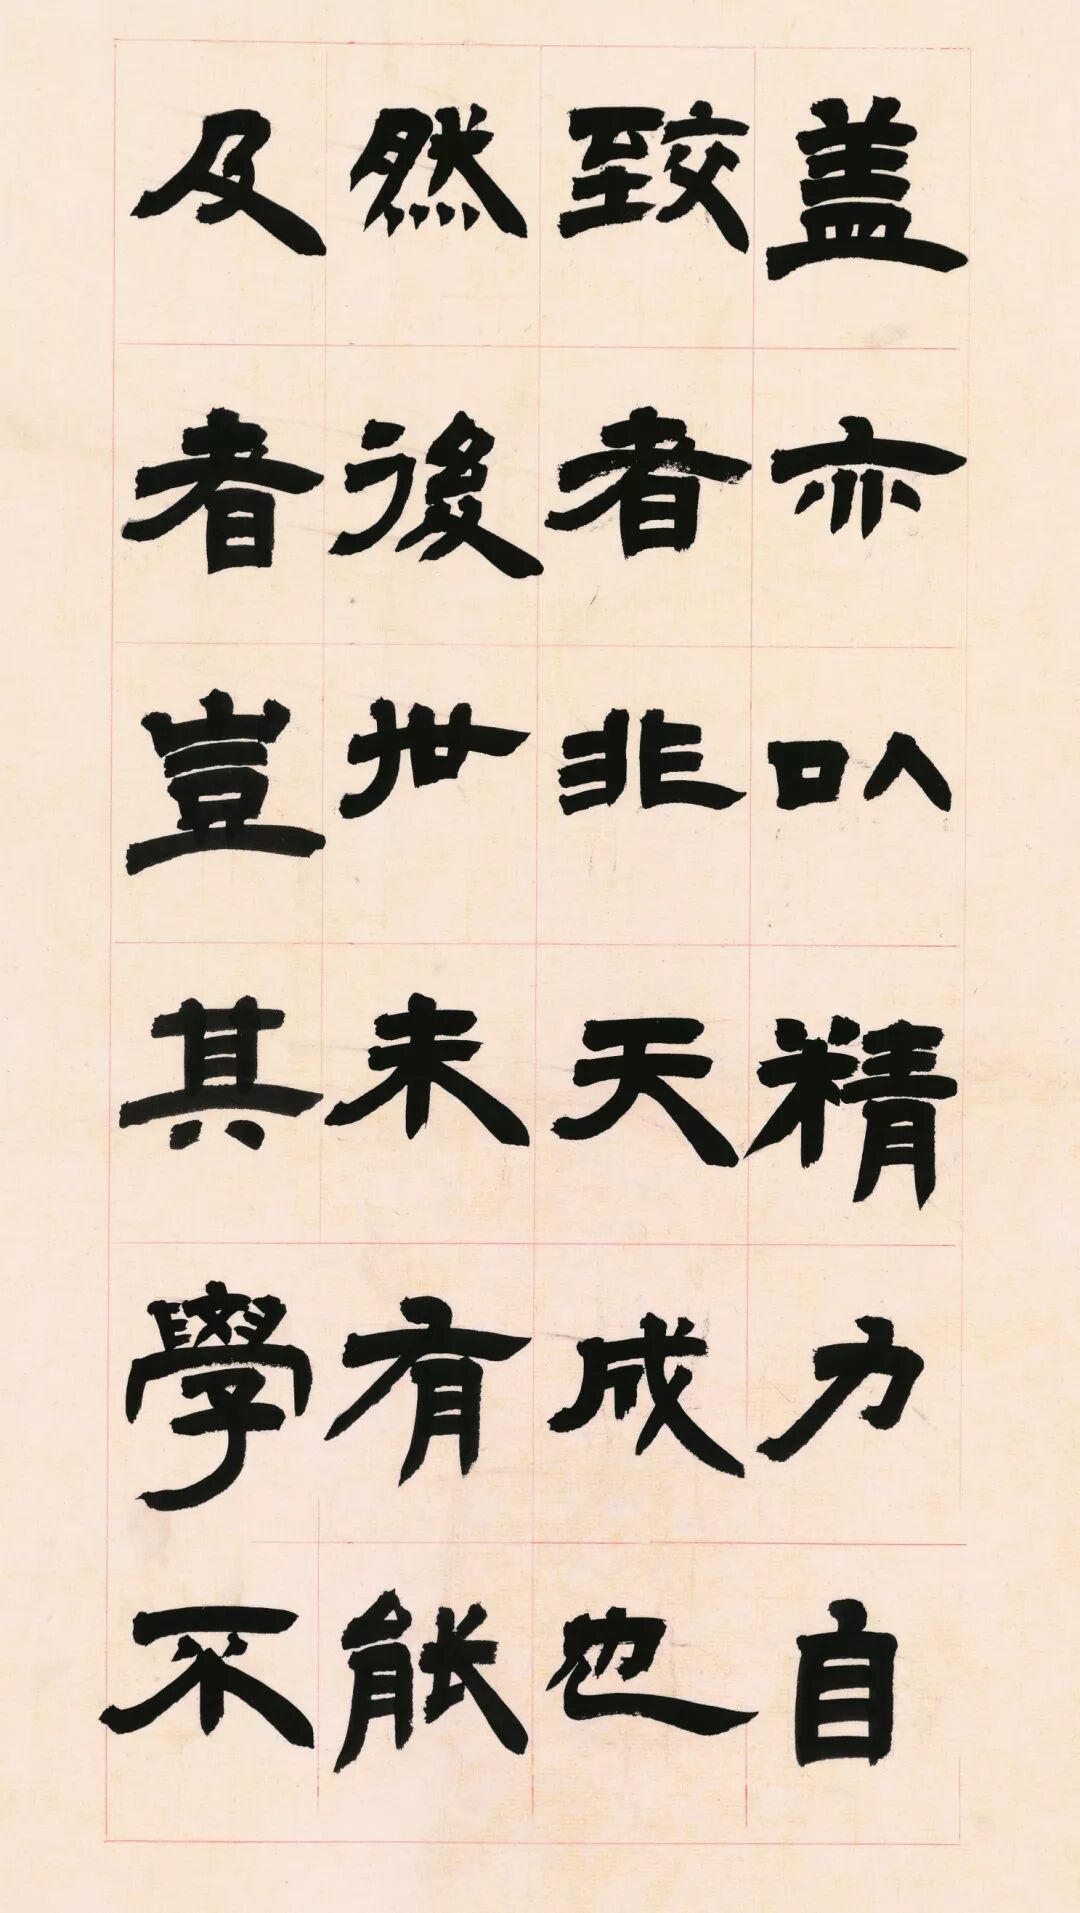 盖亦以精力自
致者非天成也
然後世未有能
及者豈其學不